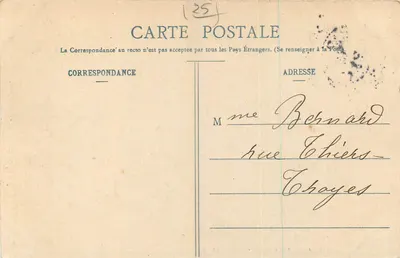 25
CARTE POSTALE
La Correspondance au recto n'est pas acceptée par tous les Pays Étrangers. (Se renseigner à la
CORRESPONDANCE
ADRESSE
Mme Bernard
rue Thiers
Troyes